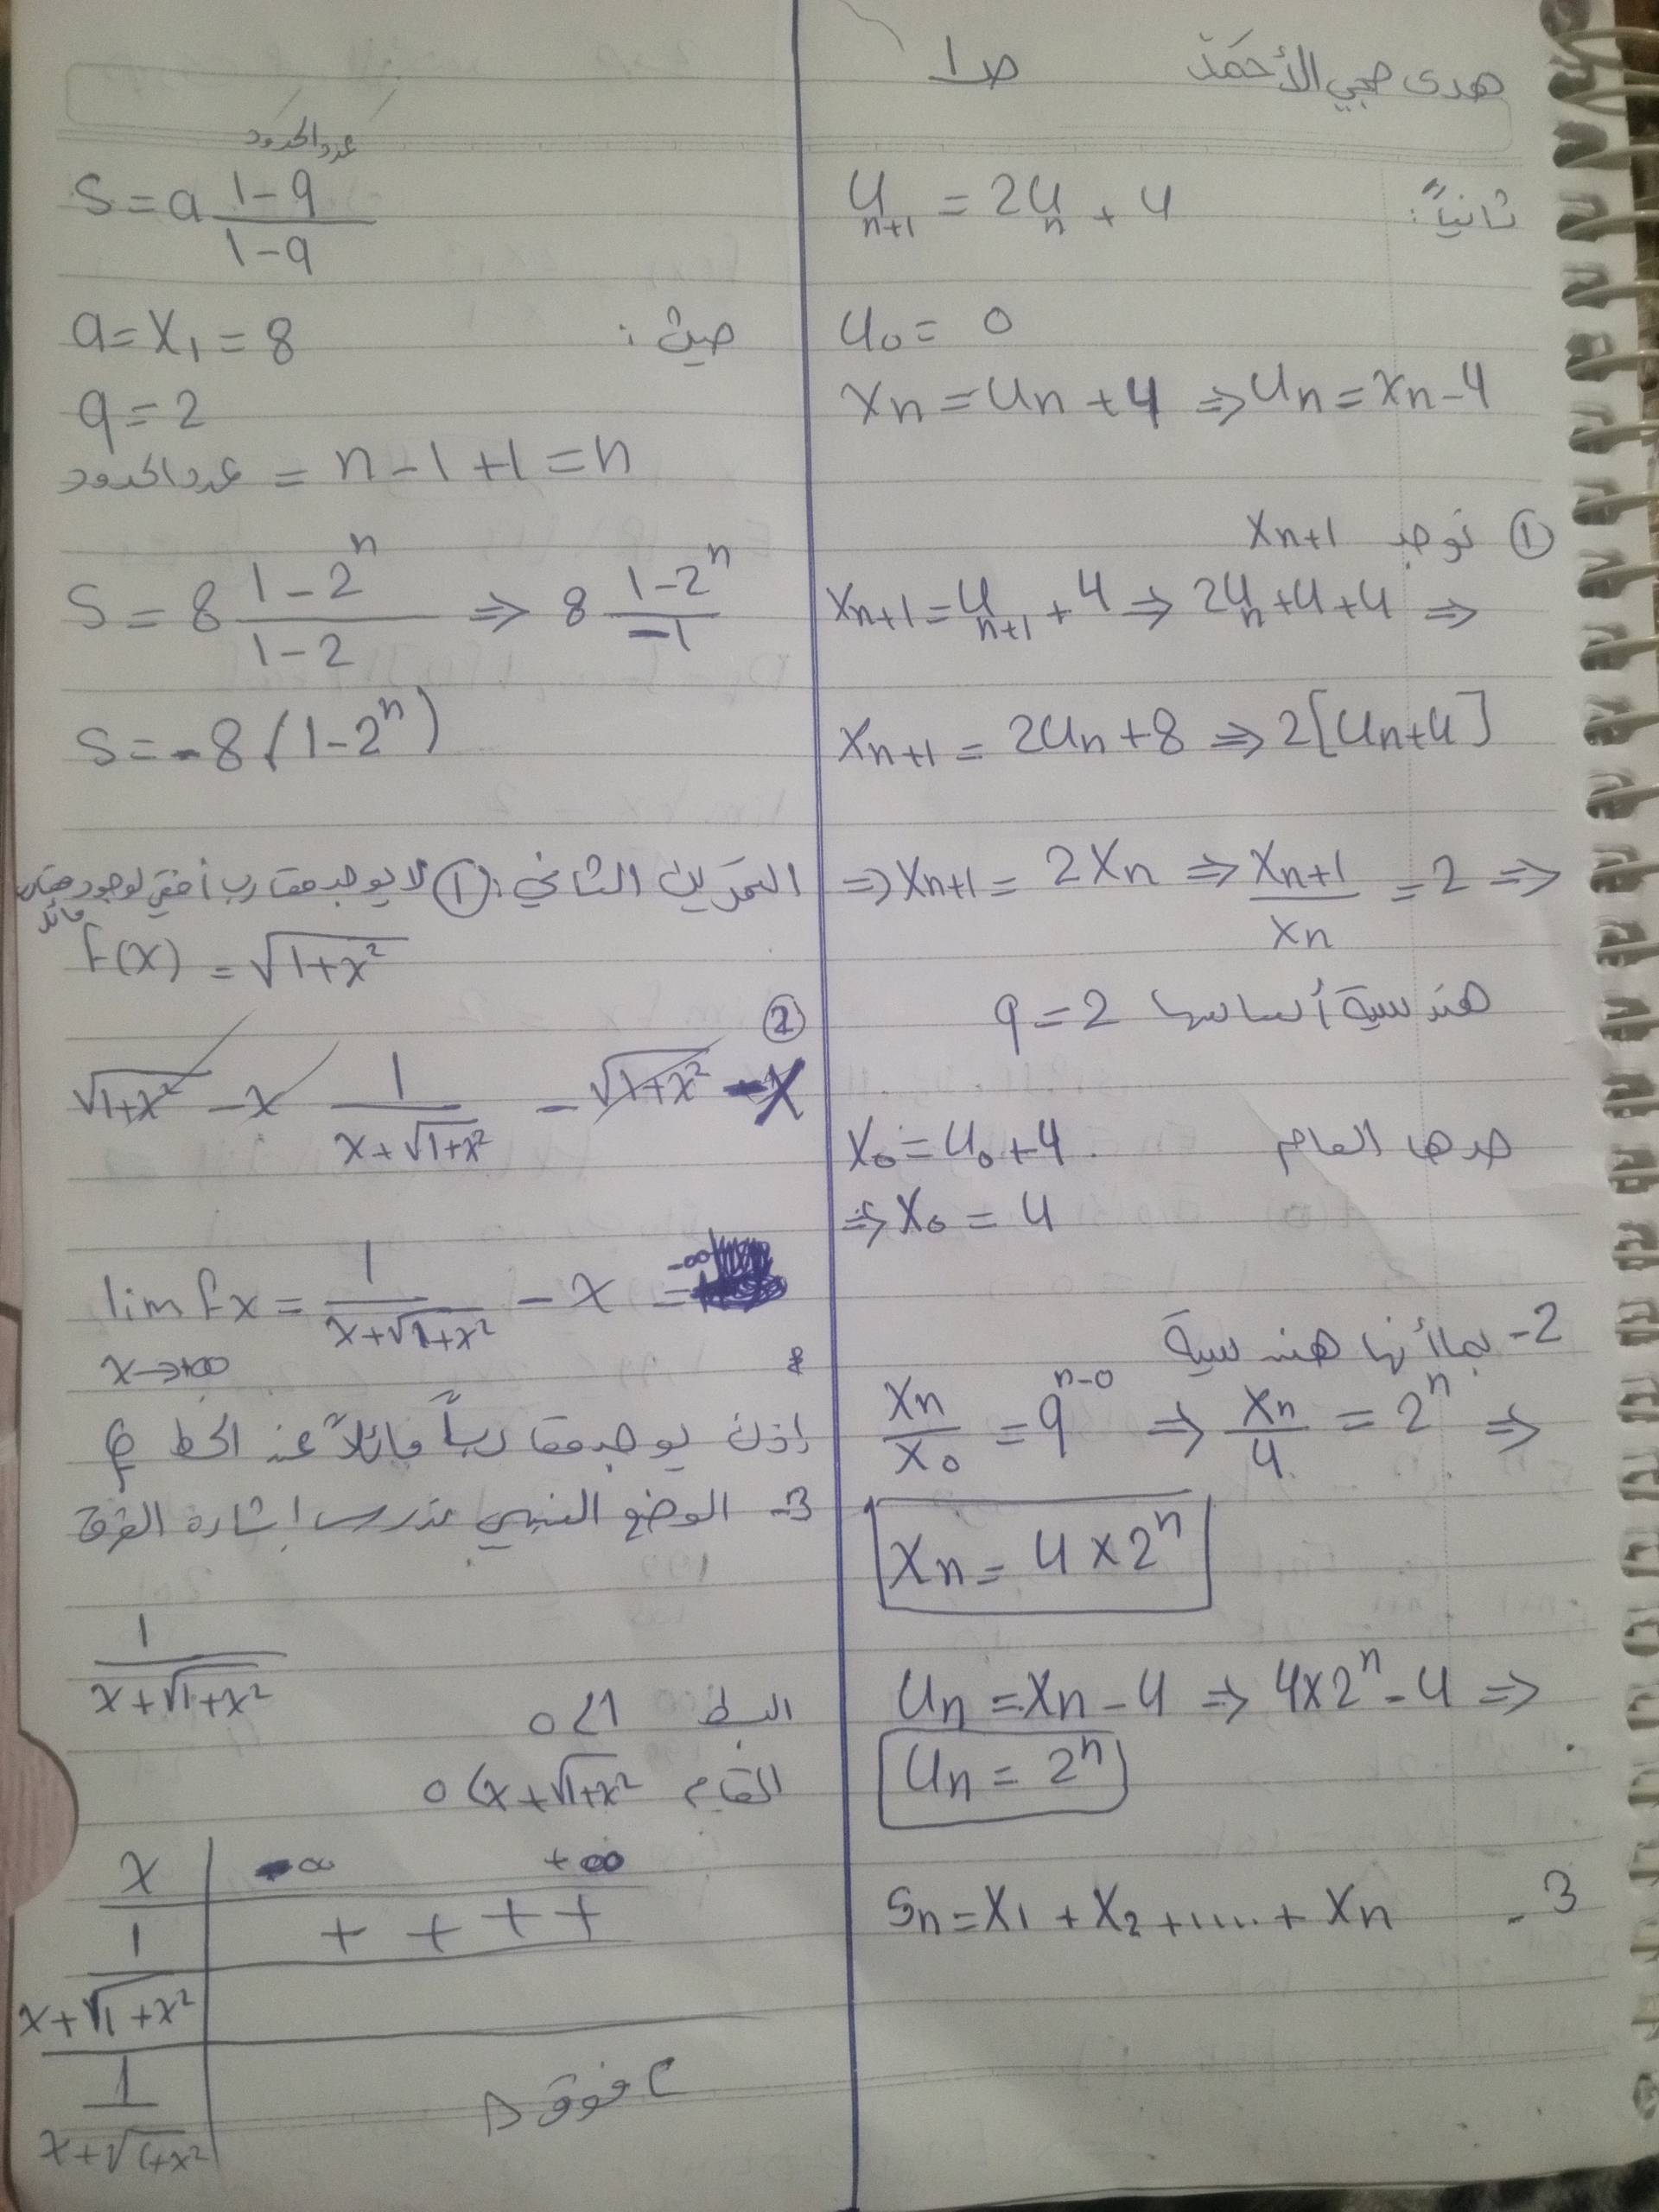 هدى صبحي الأحمد ص1
ثانياً: U_{n+1} = 2U_n + 4
U_0 = 0
X_n = U_n + 4 ⇒ U_n = X_n - 4
① نوجد X_{n+1}
X_{n+1} = U_{n+1} + 4 ⇒ 2U_n + 4 + 4 ⇒
X_{n+1} = 2U_n + 8 ⇒ 2[U_n + 4]
⇒ X_{n+1} = 2X_n ⇒ X_{n+1}/X_n = 2 ⇒
هندسية أساسها q = 2
حدها العام X_0 = U_0 + 4
⇒ X_0 = 4
2- بما أنها هندسية
X_n/X_0 = q^{n-0} ⇒ X_n/4 = 2^n ⇒
X_n = 4 × 2^n
U_n = X_n - 4 ⇒ 4×2^n - 4 ⇒
U_n = 2^n
3- S_n = X_1 + X_2 + ..... + X_n
عدد الحدود
S = a (1-q)/(1-q)
حيث: a = X_1 = 8
q = 2
عدد الحدود = n - 1 + 1 = n
S = 8 (1-2^n)/(1-2) ⇒ 8 (1-2^n)/(-1)
S = -8(1-2^n)
التمرين الثاني: ① لا يوجد مقارب أفقي لوجود مقارب مائل
f(x) = √(1+x²)
②
√(1+x²) - x 1/(x+√(1+x²)) - √(1+x²) - x
lim_{x→+∞} f x = 1/(x+√(1+x²)) - x = -∞
إذن يوجد مقارباً مائلاً عند الخط
3- الوضع النسبي ندرس إشارة الفرق
1/(x+√(1+x²))
البسط 1>0
المقام x+√(1+x²) > 0
x | -∞ +∞
1/(x+√(1+x²)) | + + + +
1/(x+√(1+x²)) | C فوق Δ